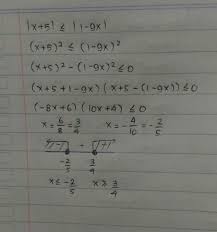 |x+5| ≤ |1-9x|
(x+5)² ≤ (1-9x)²
(x+5)² - (1-9x)² ≤ 0
(x+5+1-9x) (x+5-(1-9x)) ≤ 0
(-8x+6) (10x+4) ≤ 0
x = 6/8 = 3/4 x = -4/10 = -2/5
- + -
-2/5 3/4
x ≤ -2/5 x ≥ 3/4